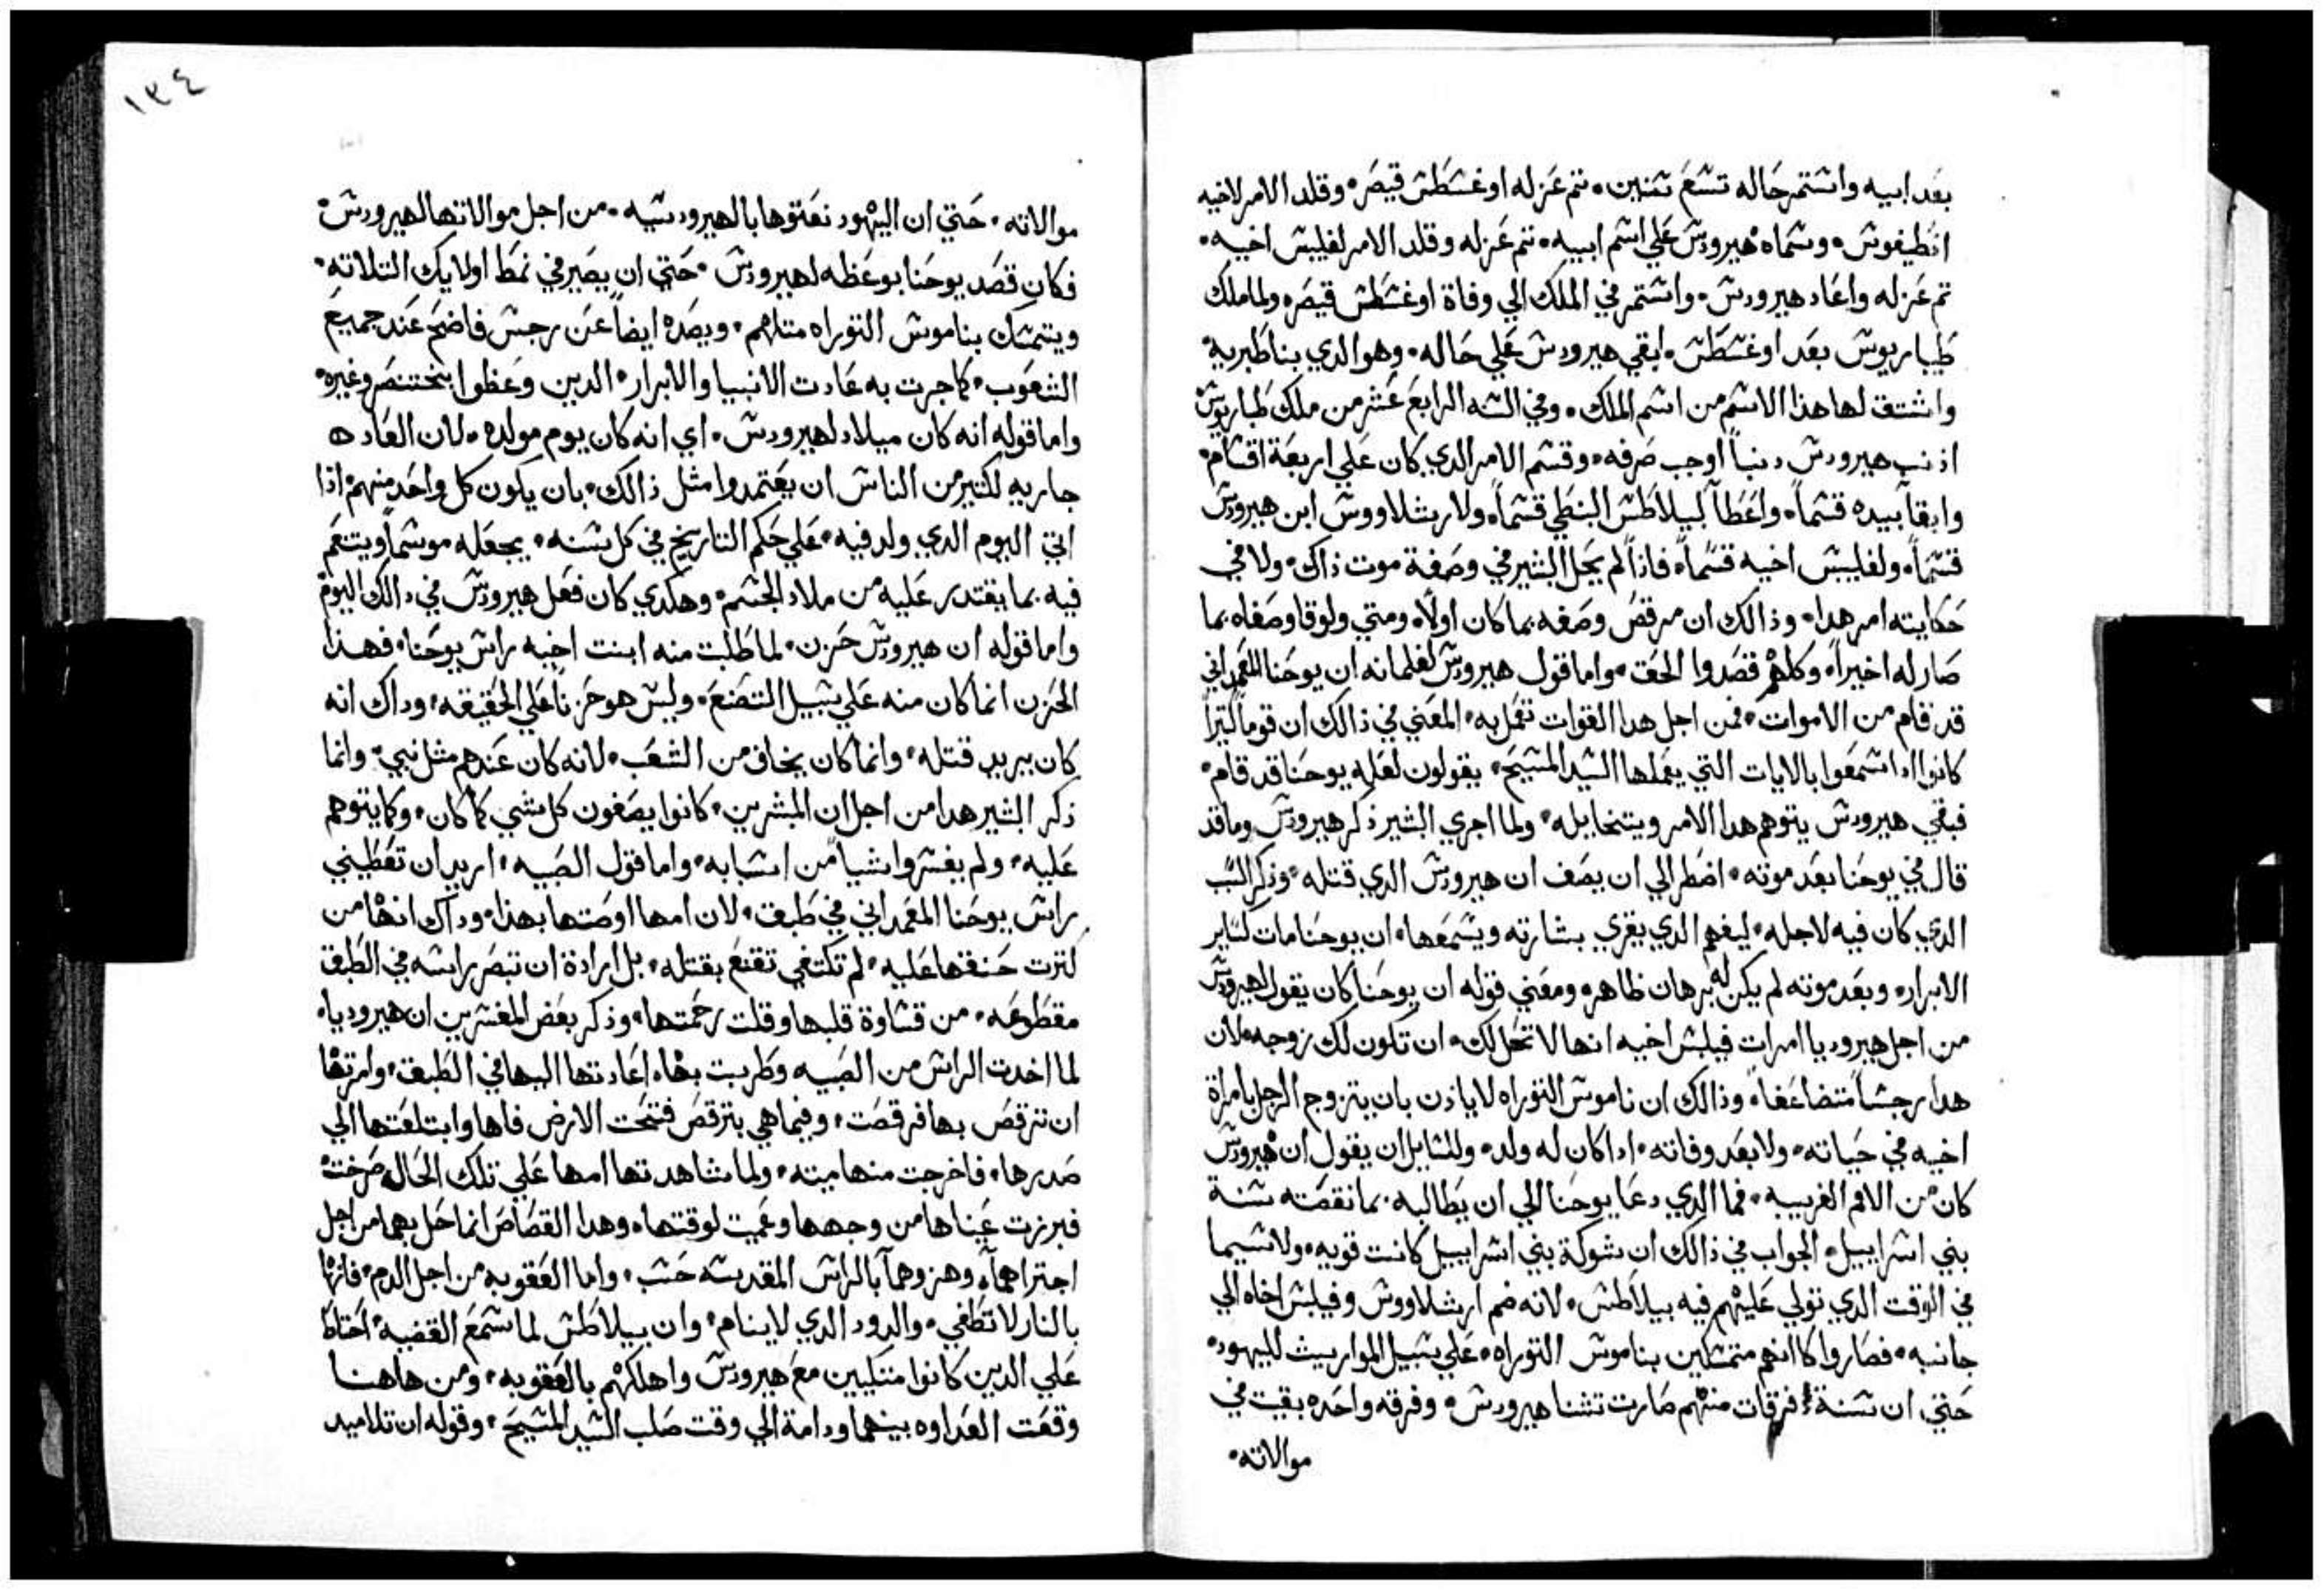 بعد ابيه واستمر حاله تسع سنين. تم عزله اوغسطس قيصر. وقلد الامر لاخيه
انطيفوس. وسماه هيرودس علي اسم ابيه. تم عزله وقلد الامر لفليبس اخيه.
تم عزله واعاد هيرودس. واستمر في الملك الي وفاة اوغسطس قيصر. ولما ملك
طيباريوس بعد اوغسطس. ابقي هيرودس علي حاله. وهو الدي بنا طبريه.
واشتق لها هذا الاسم من اسم الملك. وفي السنه الرابع عشر من ملك طباريوس
ادنب هيرودس دنباً اوجب صرفه. وقسم الامر الدي كان علي اربعة اقسام.
وابقا بيده قسماً. واعطا لبيلاطس البنطي قسماً. ولارشلاووش ابن هيرودس
قسماً. ولفليبس اخيه قسماً. فاذاً لم يخل البشير في وصفة موت ذاك. ولا في
حكايته امر هدا. وذالك ان مرقص وصفه بما كان اولاً. ومتي ولوقا وصفاه بما
صار له اخيراً. وكلهم قصدوا الحق. واما قول هيرودس لغلمانه ان يوحنا المعمداني
قد قام من الاموات. فمن اجل هدا القوات تعمل به. المعني في ذالك ان قوماً كتيراً
كانوا ادا سمعوا بالايات التي يعملها السيد المسيح. يقولون لعله يوحنا قد قام.
فبقي هيرودس يتوهم هدا الامر ويتخايله. ولما اجري البشير ذكر هيرودس وما قد
قال في يوحنا بعد موته. اضطر الي ان يصف ان هيرودس الدي قتله. وذكر السبب
الدي كان فيه لاجله. ليفهم الدي يقري بشارته ويسمعها. ان يوحنا مات كساير
الابرار. وبعد موته لم يكن له برهان ظاهر. ومعني قوله ان يوحنا كان يقول لهيرودس
من اجل هيروديا امرات فيلبس اخيه انها لا تحل لك. ان تكون لك زوجه. لان
هدا رجساً متضاعفاً. وذالك ان ناموس التوراه لا ياذن بان يتزوج الرجل بامراة
اخيه في حياته. ولا بعد وفاته. ادا كان له ولد. وللسايل ان يقول ان هيرودس
كان من الامم الغريبيه. فما الدي دعا يوحنا الي ان يطالبه بما نقصته سنة
بني اسراييل. الجواب في ذالك ان شوكة بني اسراييل كانت قويه. ولاسيما
في الوقت الدي تولي عليهم فيه بيلاطس. لانه ضم ارشلاووش وفيلبس اخاه الي
جانبه. فصاروا كالنهم متمسكين بناموس التوراه. علي سبيل المواريث لليهود.
حتي ان ستة فرقات منهم صارت تشنا هيرودس. وفرقه واحده بقيت في
موالاته.
موالاته. حتي ان اليهود نعتوها بالهيرودسيه. من اجل موالاتها لهيرودس.
فكان قصد يوحنا بوعظه لهيرودس. حتي ان يصير في نمط اولايك التلاته.
ويتمسك بناموس التوراه متلهم. ويصده ايضاً عن رجس فاضح عند جميع
الشعوب. كما جرت به عادت الانبيا والابرار. الدين وعظوا بختنصر وغيره.
واما قوله انه كان ميلاد لهيرودس. اي انه كان يوم مولده. لان العاده
جاريه لكتير من الناس ان يعتمدوا مثل ذالك. بان يكون كل واحد منهم اذا
اتي اليوم الدي ولد فيه. علي حكم التاريخ في كل سنه. يجعله موسماً ويتنعم
فيه بما يقتدر عليه من ملاد الجسم. وهكدي كان فعل هيرودس في دالك اليوم
واما قوله ان هيرودس حزن. لما طلبت منه ابنت اخيه راس يوحنا. فهذا
الحزن انما كان منه علي سبيل التصنع. وليس هو حزناً علي الحقيقه. وداك انه
كان يريد قتله. وانما كان يخاف من الشعب. لانه كان عندهم مثل نبي. وانما
ذكر البشير هدا من اجل ان المبشرين. كانوا يصفون كل شي كما كان. وكما يتوهم
عليه. ولم يفسروا شيا من اسبابه. واما قول الصبيه. اريد ان تعطيني
راس يوحنا المعمداني في طبق. لان امها اوصتها بهذا. وداك انها من
كترت حنقها عليه. لم تكتفي تقنع بقتله. بل ارادة ان تبصر راسه في الطبق
مقطوعه. من قساوة قلبها وقلت رحمتها. وذكر بعض المفسرين ان هيروديا.
لما اخدت الراس من الصبيه وطربت بها. اعادتها اليها في الطبق. وامرتها
ان ترقص بها فرقصت. وفيما هي بترقص فتحت الارض فاها وابتلعتها الي
صدرها. فاخرجت منها ميته. ولما شاهدتها امها علي تلك الحال صرخت
فبرزت عيناها من وجهها وعميت لوقتها. وهدا القصاص انما حل بهما من اجل
اجتراهما. وهزوهما بالراس المقدسه حسب. واما العقوبه من اجل الدم. فانها
بالنار لا تطفي. والدود الدي لا ينام. وان بيلاطس لما سمع القضيه. احتاط
علي الدين كانوا متكيين مع هيرودس واهلكهم بالعقوبه. ومن هاهنا
وقعت العداوه بينهما ودامة الي وقت صلب السيد المسيح. وقوله ان تلاميد
١٣٤